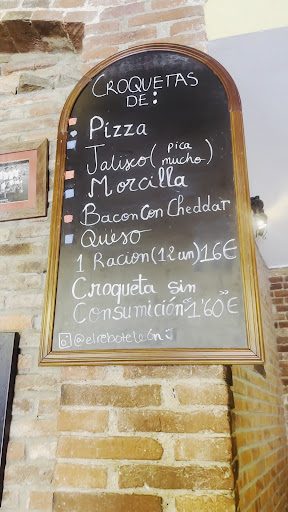 CROQUETAS
DE:
Pizza
Jalisco (pica mucho)
Morcilla
Bacon Con Cheddar
Queso
1 Racion (12 un) 16€
Croqueta sin
Consumición 1'60€